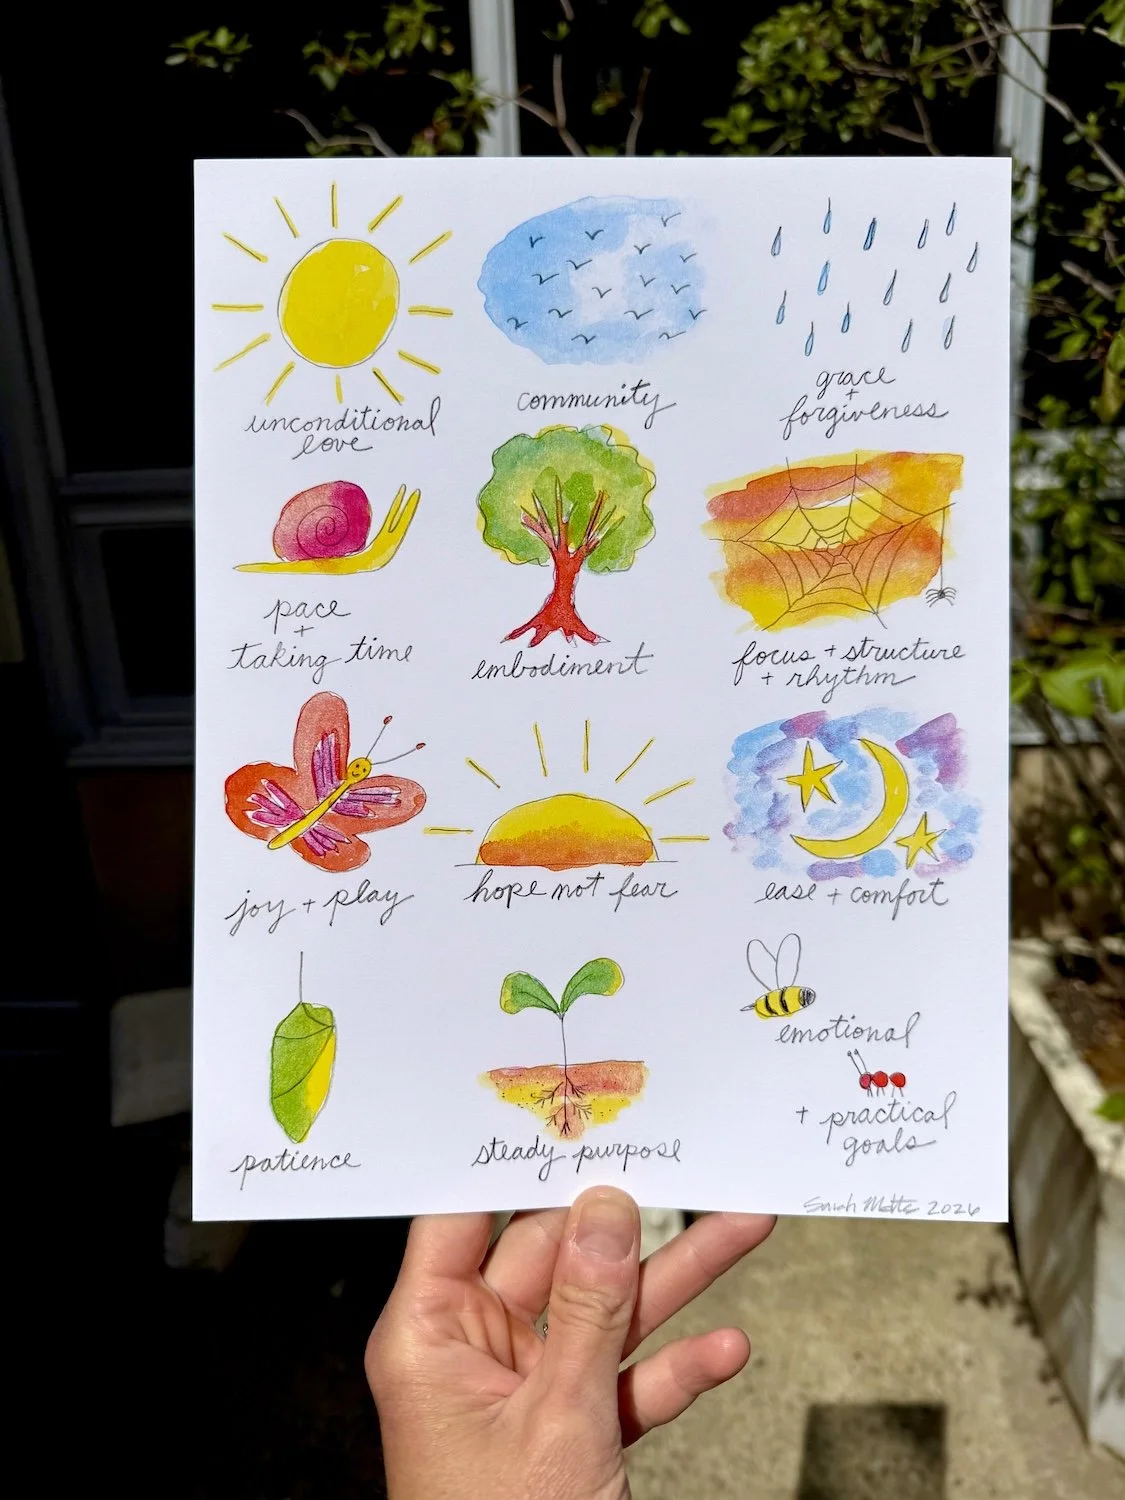 unconditional
love
community
grace
+
forgiveness
pace
+
taking time
embodiment
focus + structure
+ rhythm
joy + play
hope not fear
ease + comfort
patience
steady purpose
emotional
+ practical
goals
Sarah 2026